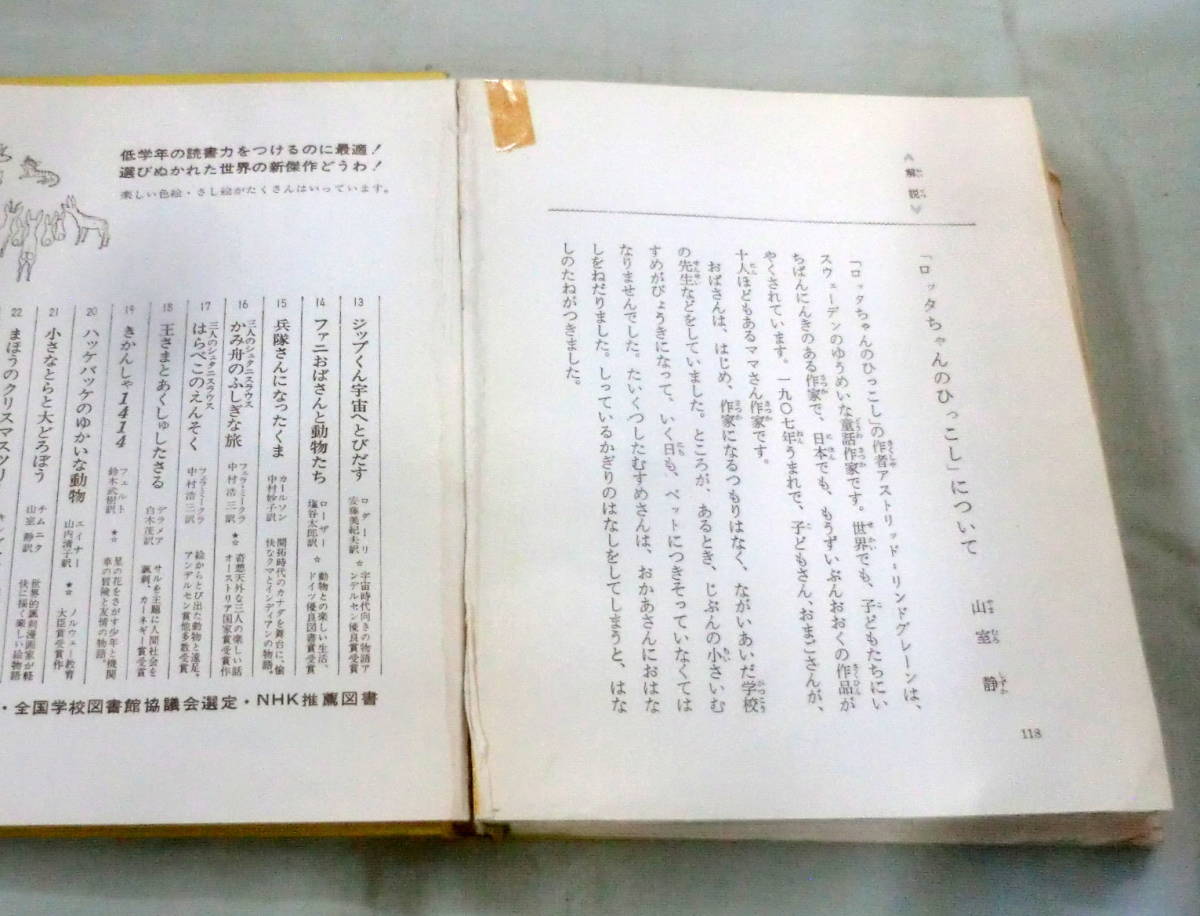 《解説》
「ロッタちゃんのひっこし」について
山室 静
「ロッタちゃんのひっこし」の作者アストリッド・リンドグレーンは、
スウェーデンのゆうめいな童話作家です。世界でも、子どもたちにい
ちばんにんきのある作家で、日本でも、もうずいぶんおおくの作品が
やくされています。一九〇七年うまれで、子どもさん、おまごさんが、
十人ほどもあるママさん作家です。
おばさんは、はじめ、作家になるつもりはなく、ながいあいだ学校
の先生などをしていました。ところが、あるとき、じぶんの小さいむ
すめがびょうきになって、いく日も、ベットにつきそっていなくては
なりませんでした。たいくつしたむすめさんは、おかあさんにおはな
しをねだりました。しっているかぎりのはなしをしてしまうと、はな
しのたねがつきました。
118
低学年の読書力をつけるのに最適!
選びぬかれた世界の新傑作どうわ!
楽しい色絵・さし絵がたくさんはいっています。
13 ジップくん宇宙へとびだす ロダーリ 安藤美紀夫訳 ☆ 宇宙時代向きの物語アンデルセン優良賞受賞
14 ファニおばさんと動物たち ローザー 塩谷太郎訳 ☆ 動物との楽しい生活、ドイツ優良図書賞受賞
15 兵隊さんになったくま カールソン 中村妙子訳 開拓時代のカナダを舞台に、愉快なクマとインディアンの物語。
16 三人のシュタニスラウス かみ舟のふしぎな旅 フェラ・ミークラ 中村浩三訳 ★☆ 奇想天外な三人の楽しい話 オーストリア国家賞受賞作
17 三人のシュタニスラウス はらぺこのえんそく フェラ・ミークラ 中村浩三訳 絵からとび出た動物と遠足。アンデルセン賞他多数受賞。
18 王さまとあくしゅしたさる デラメア 白木茂訳 サルを主題に人間社会を諷刺、カーネギー賞受賞
19 きかんしゃ1414 フェルト 鈴木武樹訳 ★☆ 星の花をさがす少年と機関車の冒険と友情の物語。
20 ハッケバッケのゆかいな動物 エイナー 山内清子訳 ★☆ ノルウェー教育大臣賞受賞作
21 小さなとらと大どろぼう チムニク 山室静訳 世界的諷刺漫画家が軽快に描く楽しい絵物語
22 まほうのクリスマスツリ
・全国学校図書館協議会選定・NHK推薦図書